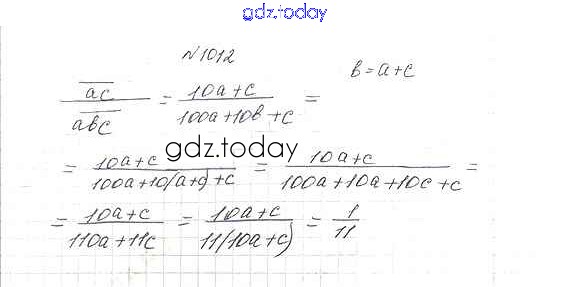 gdz.today
N1012
b = a + c
ac / abc = (10a + c) / (100a + 10b + c) =
gdz.today
= (10a + c) / (100a + 10(a + c) + c) = (10a + c) / (100a + 10a + 10c + c) =
= (10a + c) / (110a + 11c) = (10a + c) / (11(10a + c)) = 1 / 11